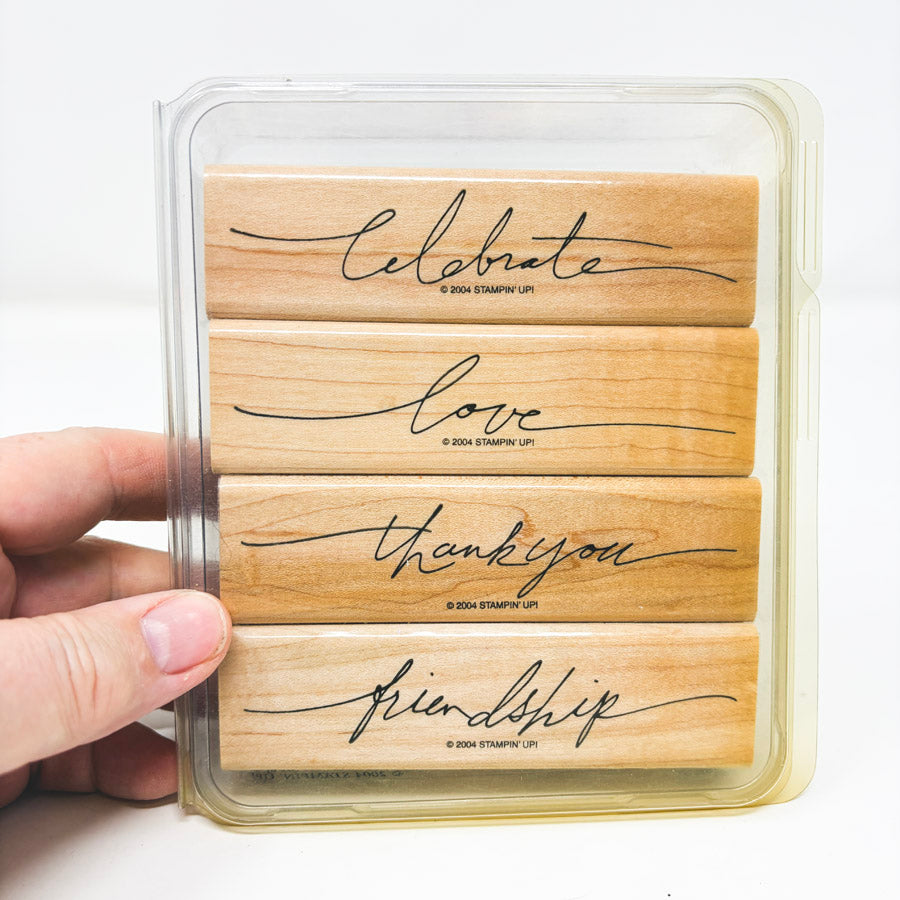 Celebrate
© 2004 STAMPIN' UP!
love
© 2004 STAMPIN' UP!
thank you
© 2004 STAMPIN' UP!
friendship
© 2004 STAMPIN' UP!
© 2004 STAMPIN' UP!